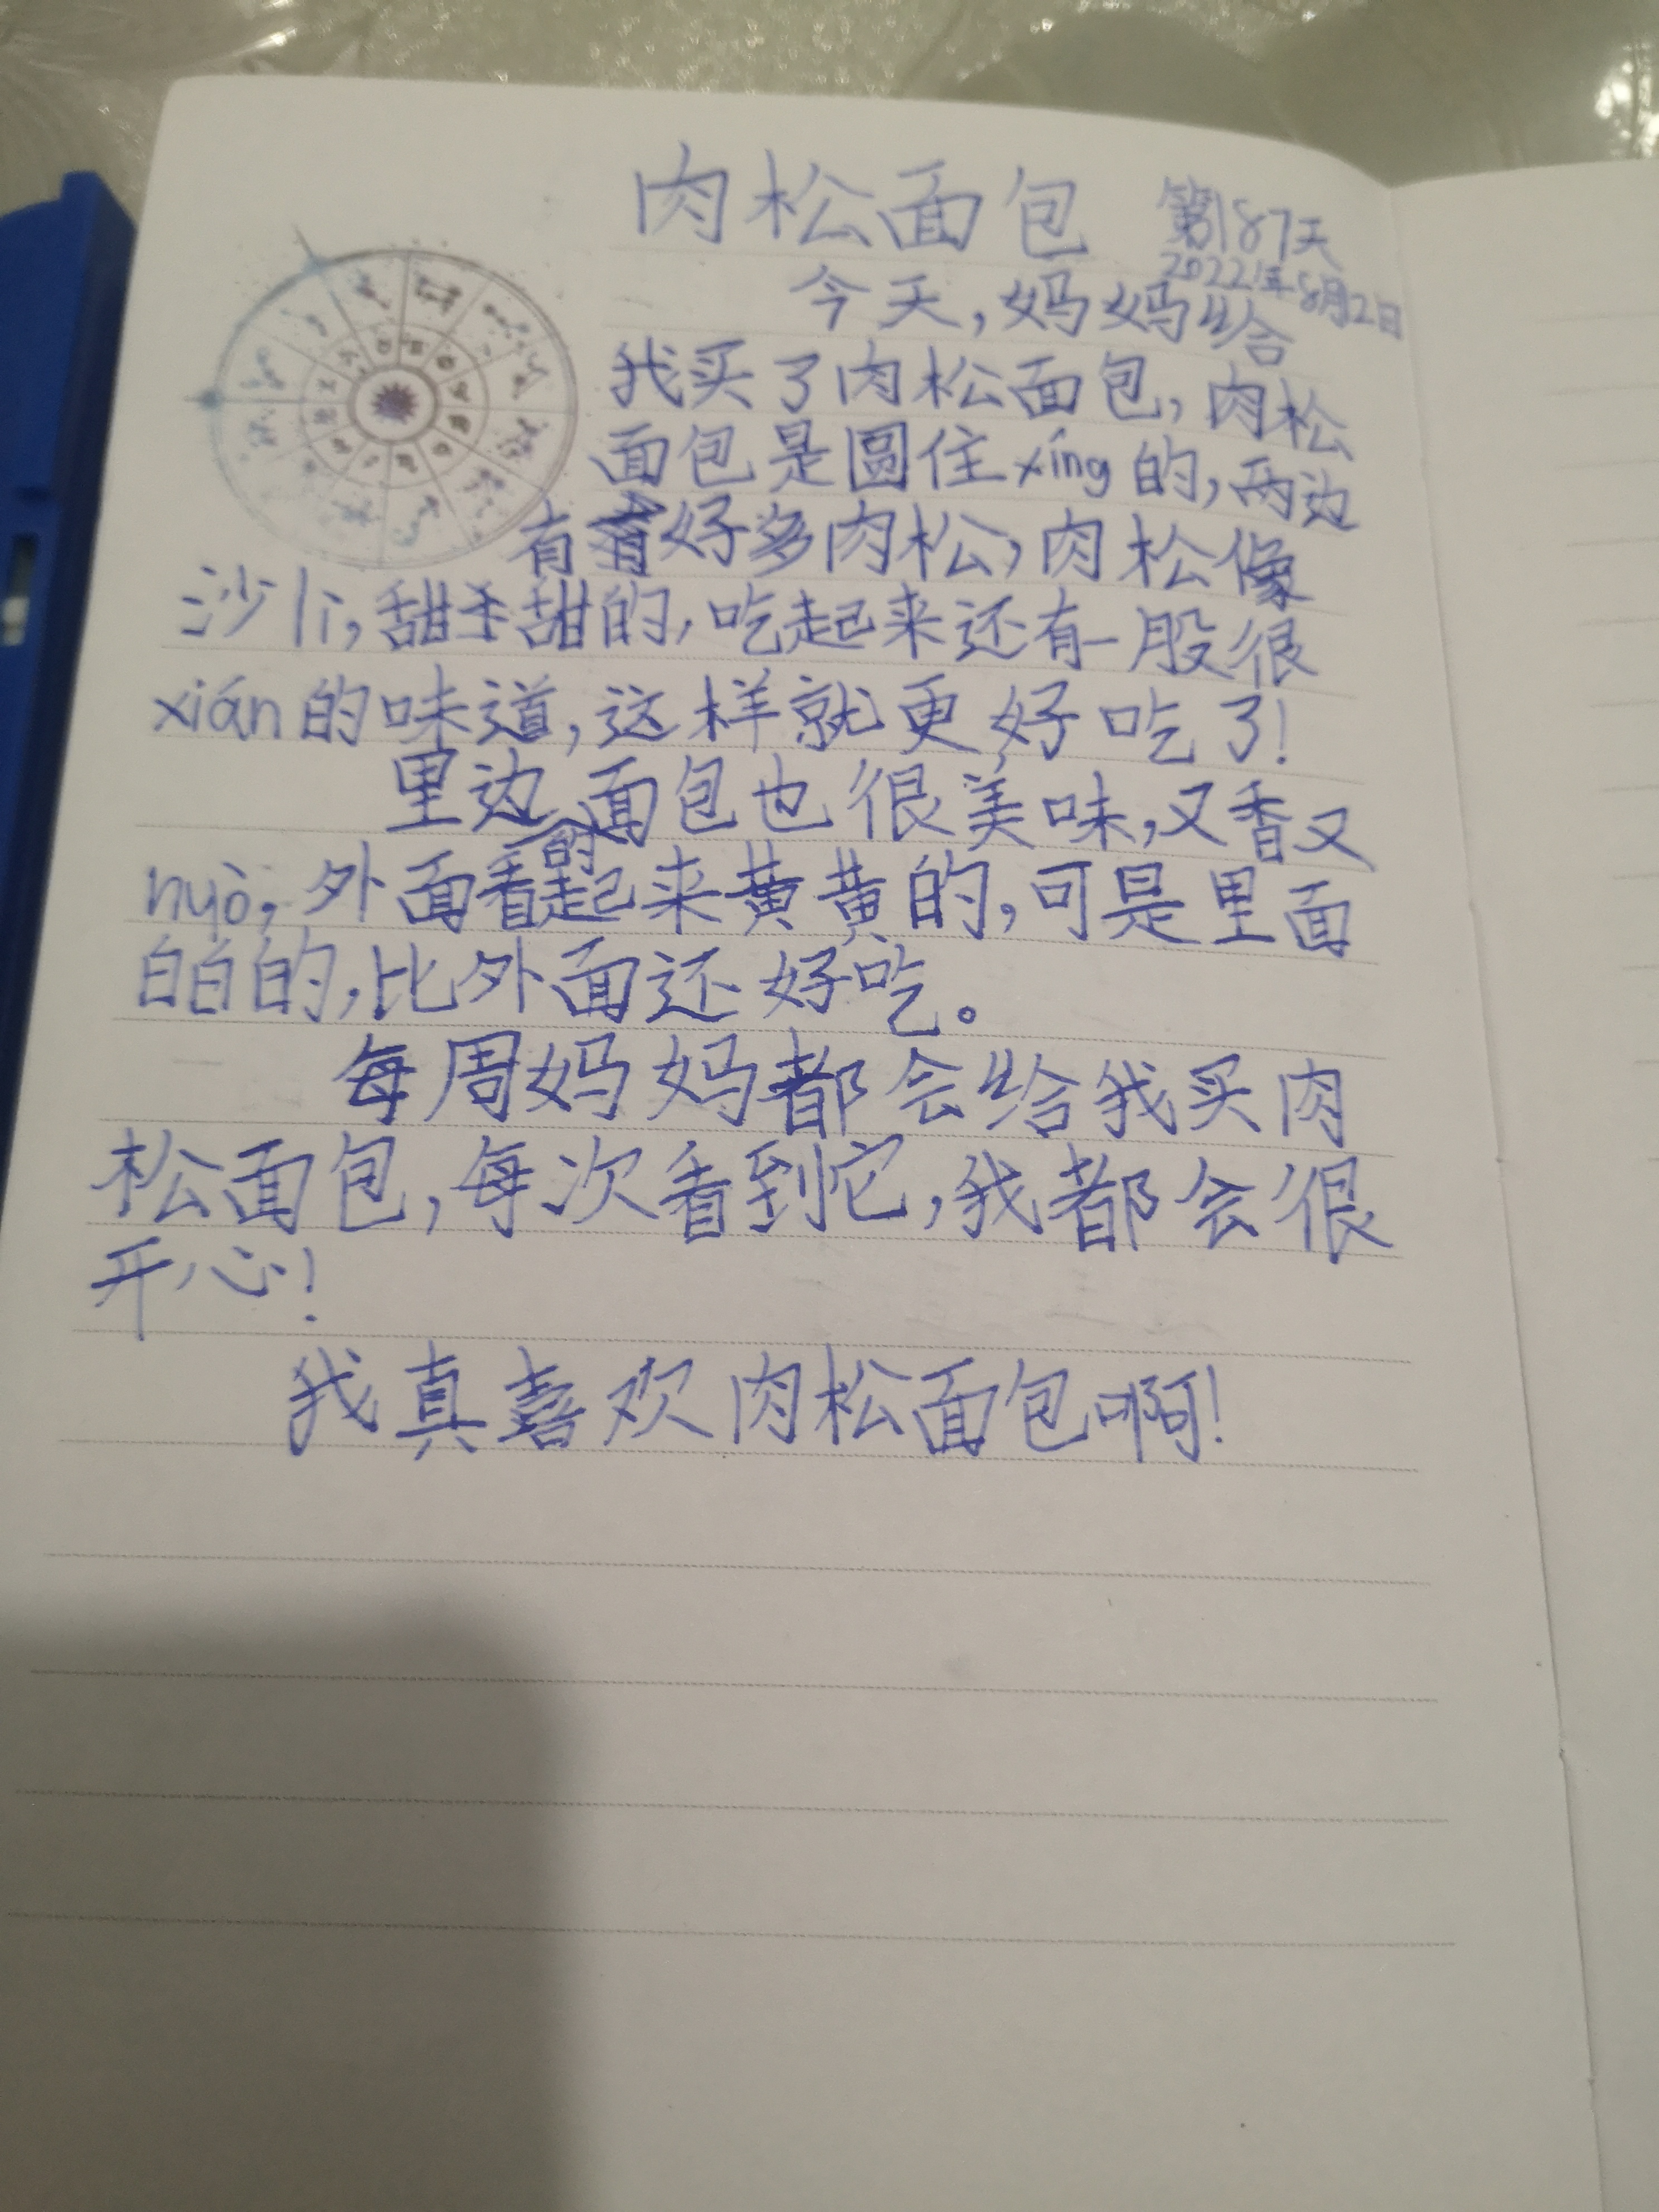 肉松面包
第187天
2022年8月2日
今天,妈妈给
我买了肉松面包,肉松
面包是圆住xíng的,两边
有好多肉松,肉松像
沙lì,甜甜的,吃起来还有一股很
xián的味道,这样就更好吃了!
里边的面包也很美味,又香又
nuò,外面看起来黄黄的,可是里面
白白的,比外面还好吃。
每周妈妈都会给我买肉
松面包,每次看到它,我都会很
开心!
我真喜欢肉松面包啊!